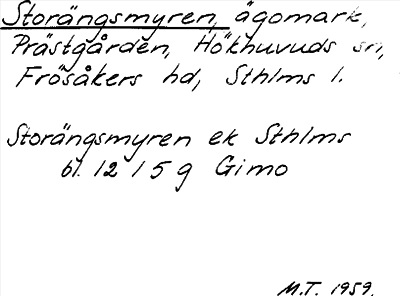 Storängsmyren, ägomark,
Prästgården, Hökhuvuds sn,
Frösåkers hd, Sthlms l.
Storängsmyren ek Sthlms
bl. 12 I 5 g Gimo
M.T. 1959.